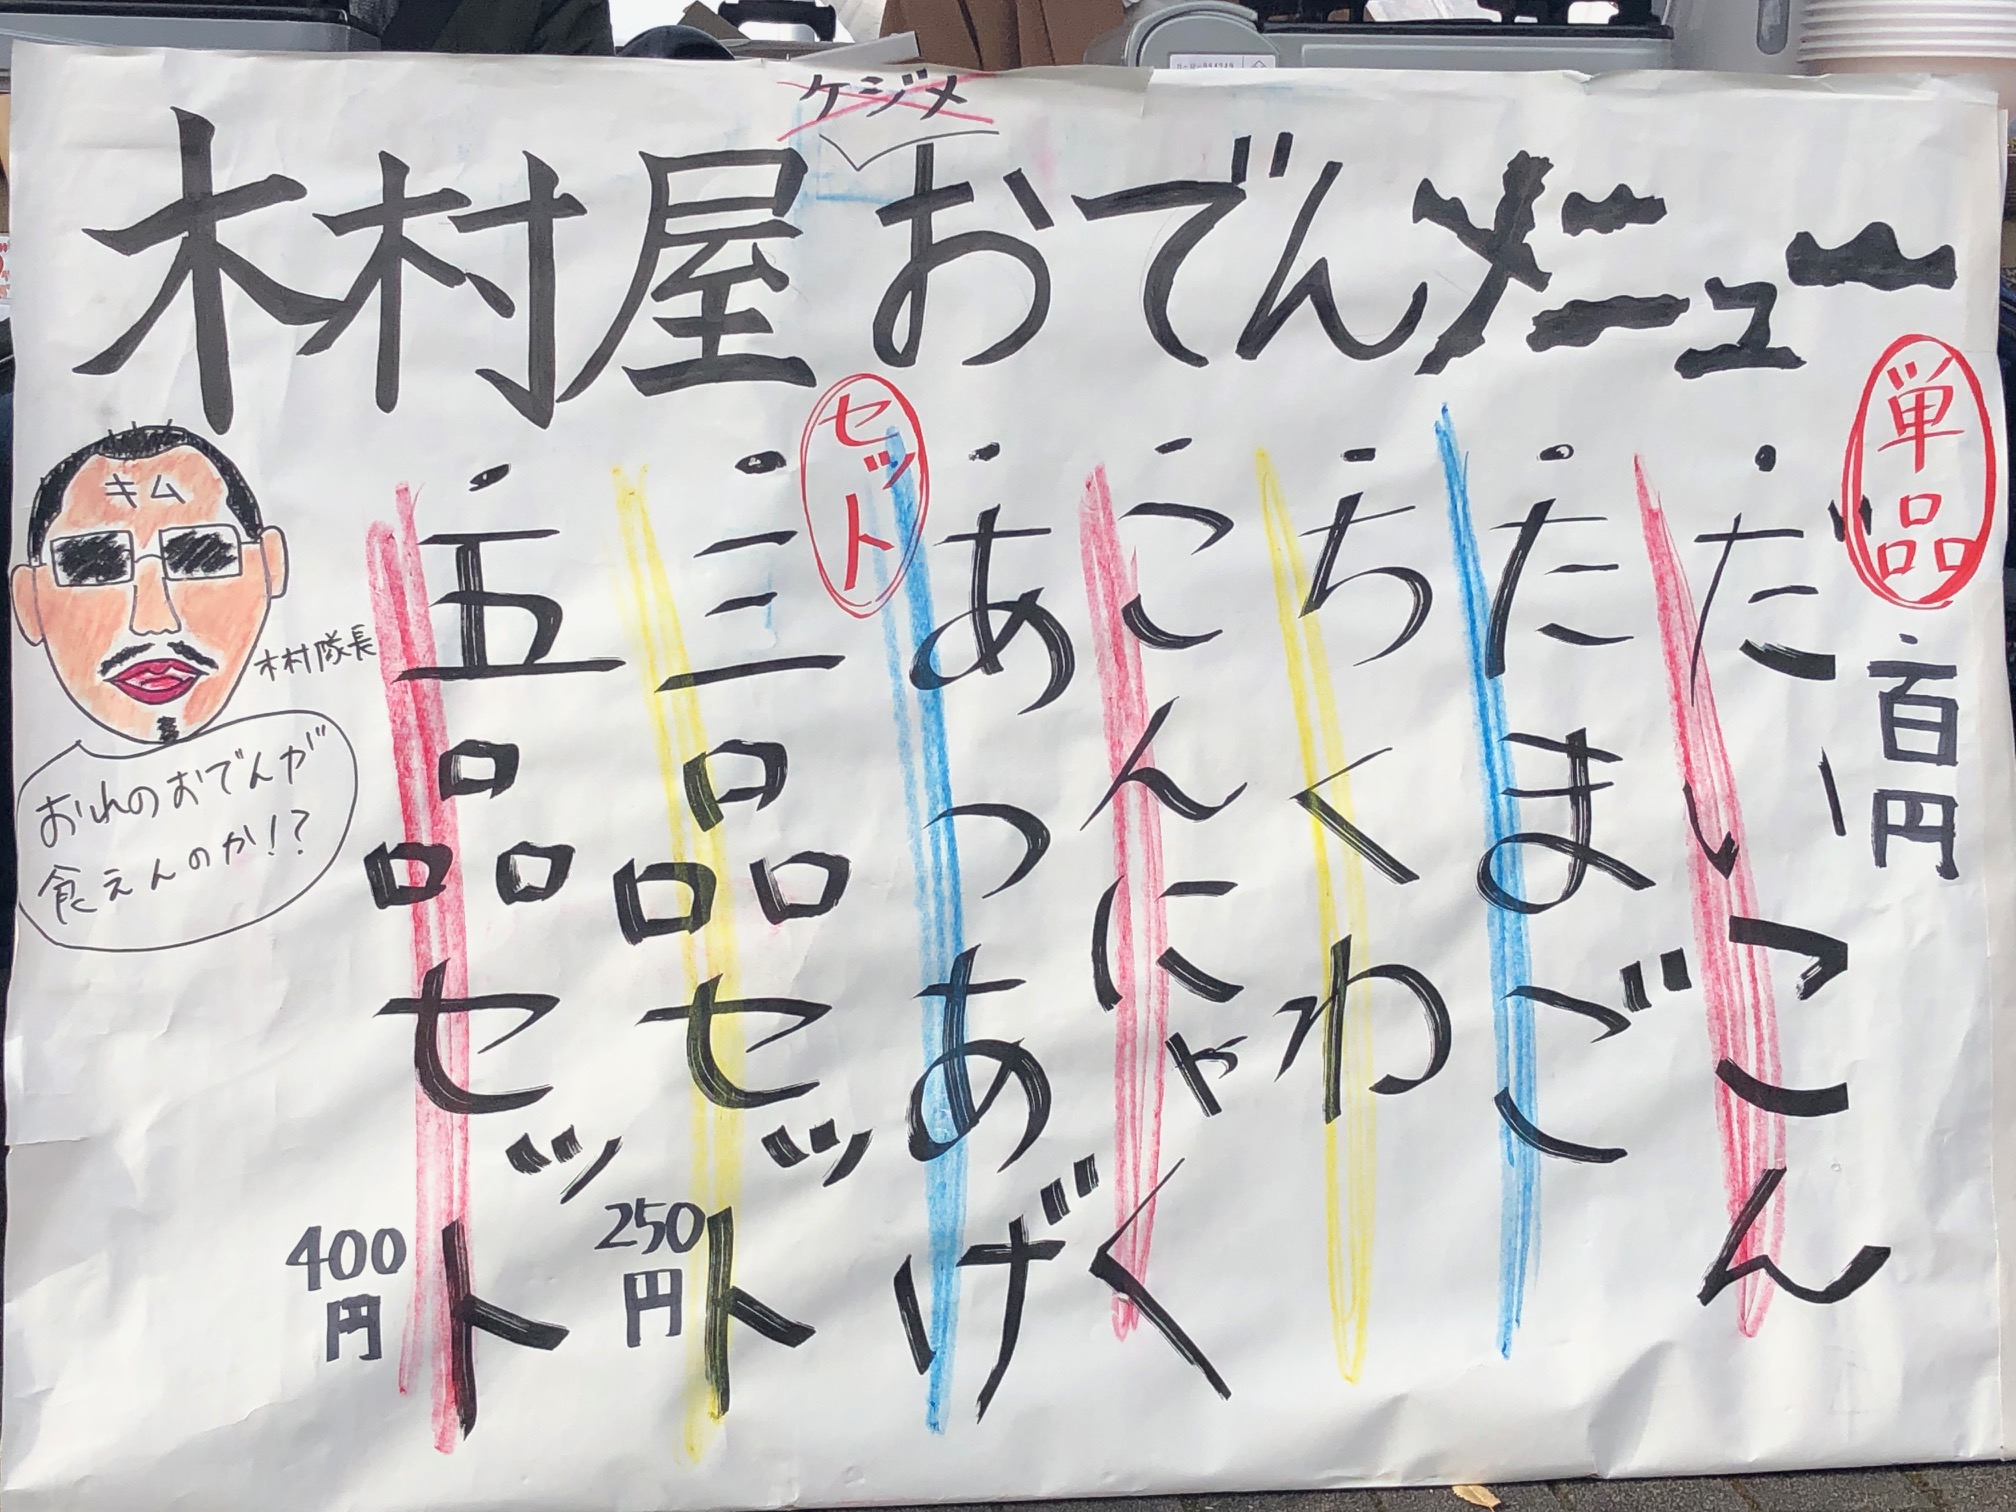 ケジメ
木村屋おでんメニュー
単品
百円
・だいこん
・たまご
・ちくわ
・こんにゃく
・あつあげ
セット
・三品セット
250円
・五品セット
400円
キム
木村隊長
おれのおでんが
食えんのか!?